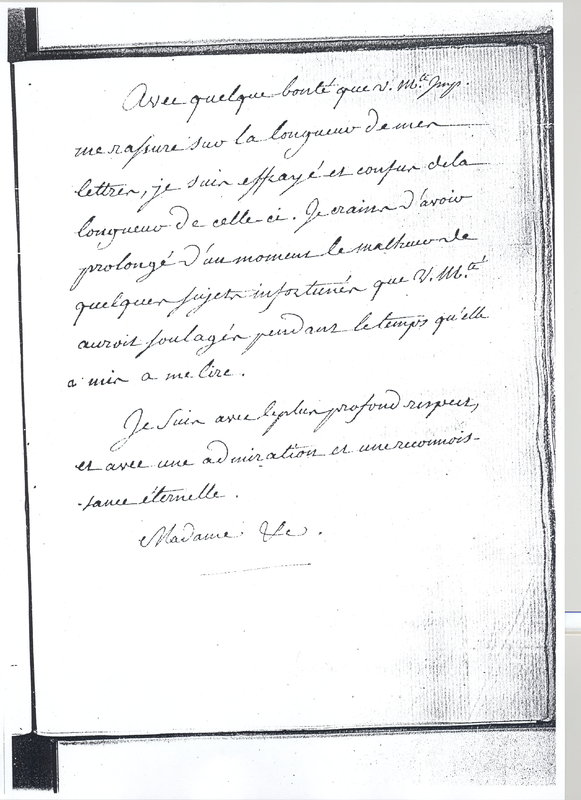 Avec quelque bonté que V. M.té Imp.
me rassure sur la longueur de mes
lettres, je suis effrayé et confus de la
longueur de celle-ci. Je crains d'avoir
prolongé d'un moment le malheur de
quelques sujets infortunés que V. M.té
auroit soulagés pendant le temps qu'elle
a mis a me lire.
Je suis avec le plus profond respect,
et avec une admiration et une reconnois-
-sance éternelle.
Madame &c.